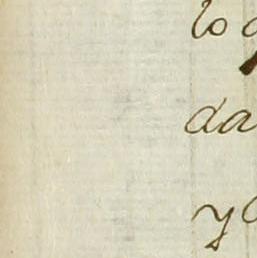 lo
da
y